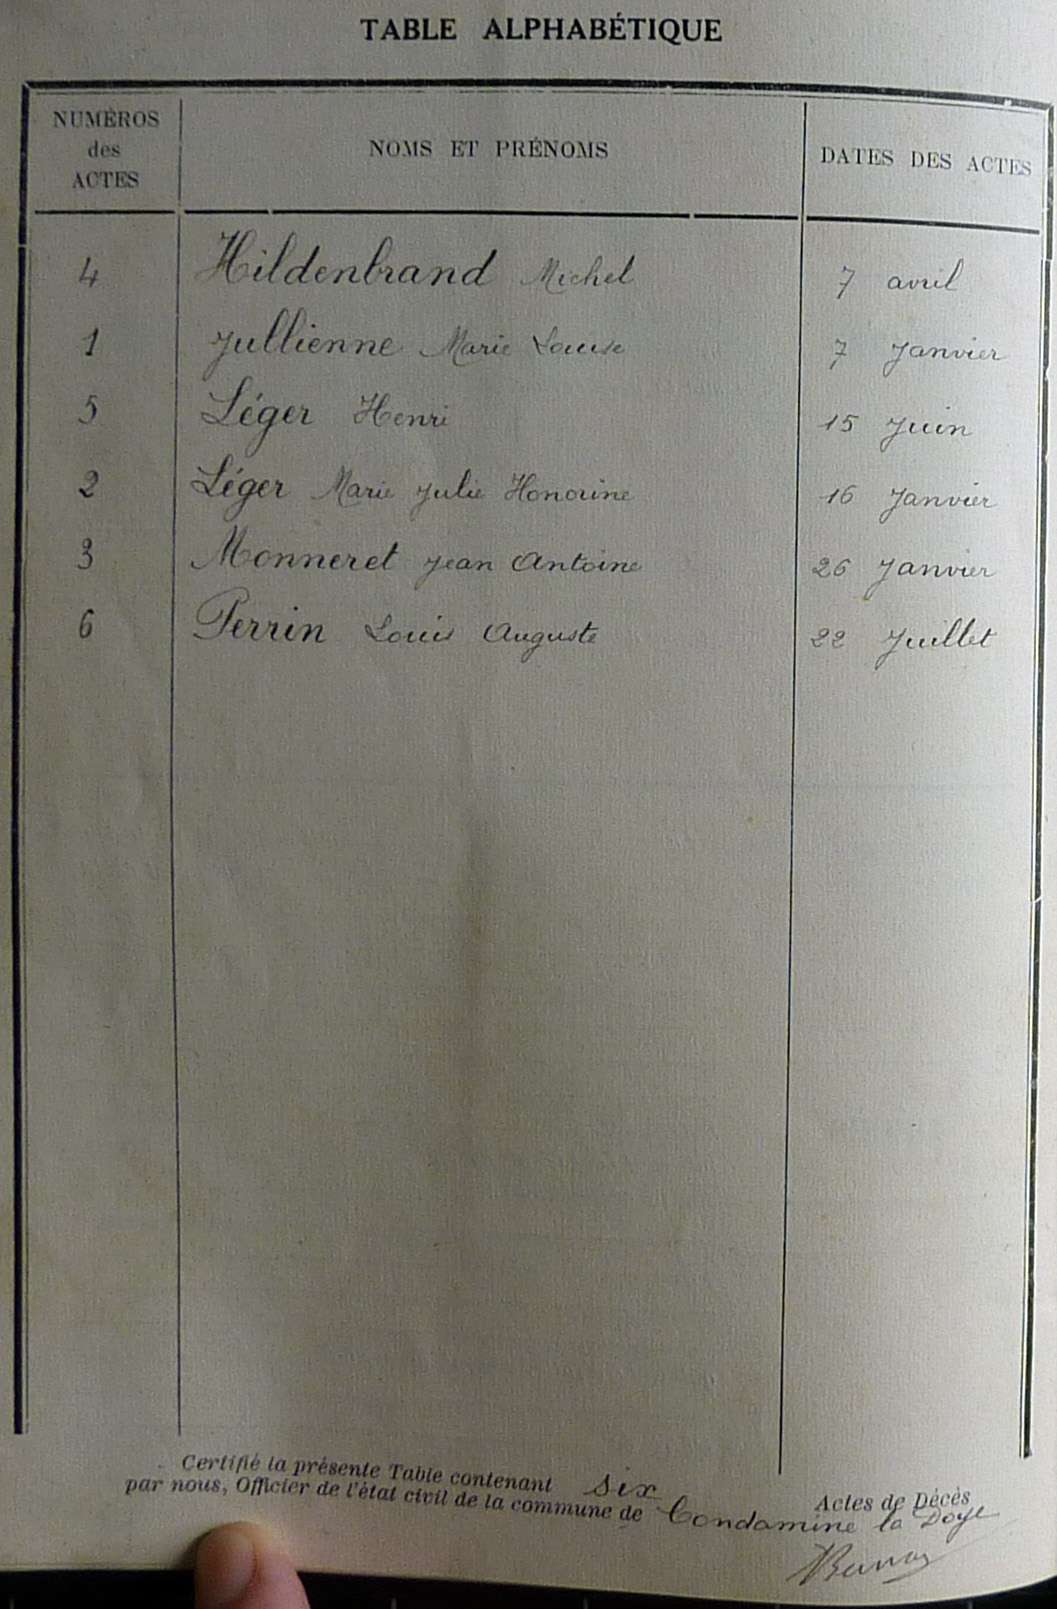 TABLE ALPHABÉTIQUE
NUMÉROS
des
ACTES
NOMS ET PRÉNOMS
DATES DES ACTES
4 Hildenbrand Michel 7 avril
1 Jullienne Marie Louise 7 Janvier
5 Léger Henri 15 Juin
2 Léger Marie Julie Honorine 16 Janvier
3 Monneret Jean Antoine 26 Janvier
6 Perrin Louis Auguste 22 Juillet
Certifié la présente Table contenant six Actes de Décès
par nous, Officier de l'état civil de la commune de Condamine la Doye